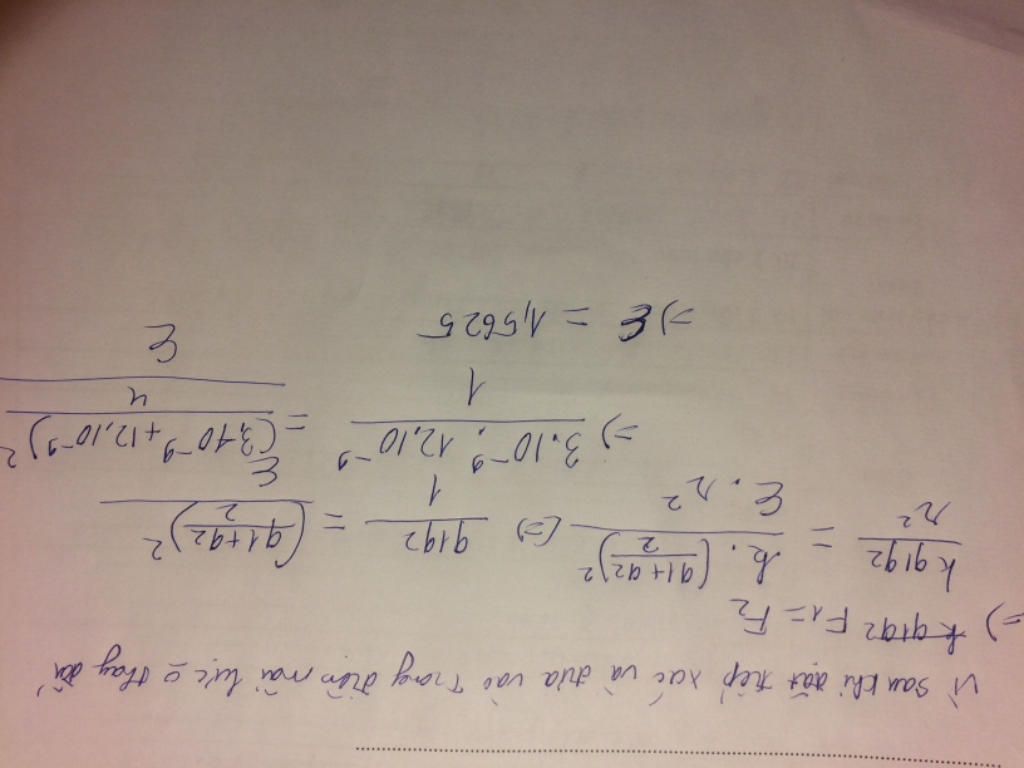 Vì sau khi đặt tiếp xúc và đưa vào trong điện môi lực o thay đổi
=) k q1q2 F1 = F2
k q1q2 / r² = k . (q1+q2 / 2)² / ε . r² (=) q1q2 / 1 = (q1+q2 / 2)² / ε
=) 3.10⁻⁹ . 12.10⁻⁹ / 1 = (3.10⁻⁹ + 12.10⁻⁹)² / 4 / ε
=) ε = 1,5625